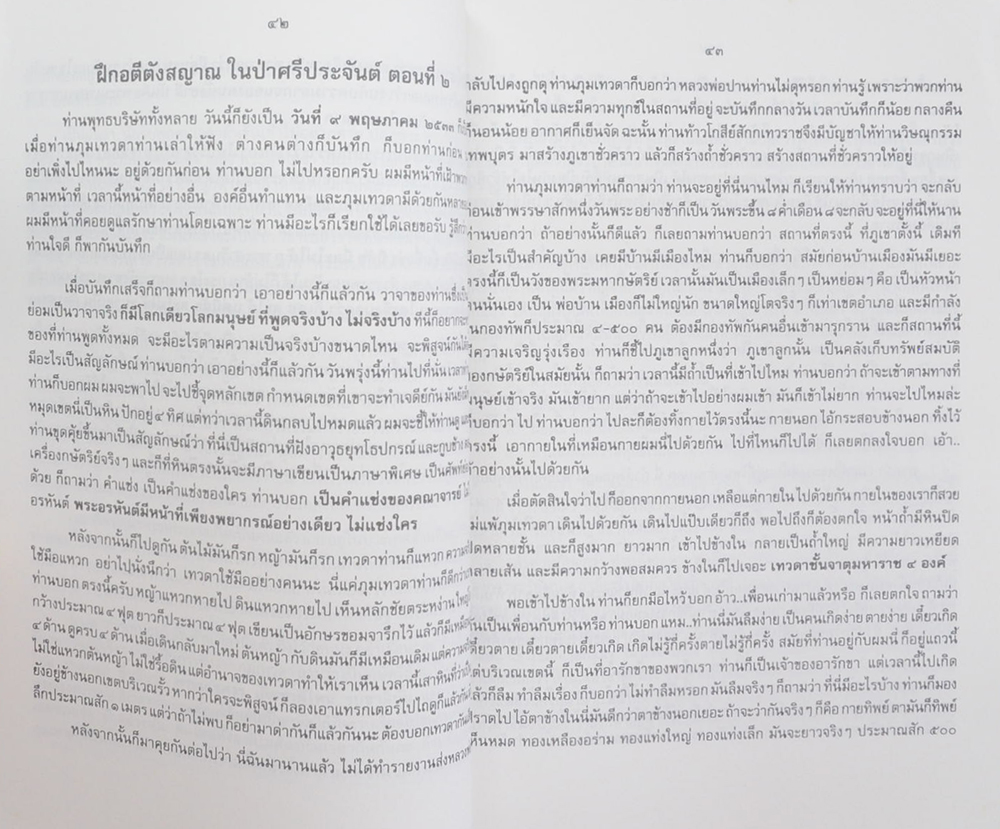 ๔๒
ฝึกอตีตังสญาณ ในป่าศรีประจันต์ ตอนที่ ๒
ท่านพุทธบริษัททั้งหลาย วันนี้ก็ยังเป็น วันที่ ๙ พฤษภาคม ๒๕๓๓
เมื่อท่านภุมเทวดาท่านเล่าให้ฟัง ต่างคนต่างก็บันทึก ก็บอกท่านก่อน
อย่าเพิ่งไปไหนนะ อยู่ด้วยกันก่อน ท่านบอก ไม่ไปหรอกครับ ผมมีหน้าที่
ตามหน้าที่ เวลานี้หน้าที่อย่างอื่น องค์อื่นทำแทน และภุมเทวดามีด้วยกัน
ผมมีหน้าที่คอยดูแลรักษาท่านโดยเฉพาะ ท่านมีอะไรก็เรียกใช้ได้เลยขอรับ
ท่านใจดี ก็พากันบันทึก
เมื่อบันทึกเสร็จก็ถามท่านบอกว่า เอาอย่างนี้ก็แล้วกัน วาจาของท่าน
ย่อมเป็นวาจาจริง ก็มีโลกเดียวโลกมนุษย์ ที่พูดจริงบ้าง ไม่จริงบ้าง ทีนี้ก็
ของที่ท่านพูดทั้งหมด จะมีอะไรตามความเป็นจริงบ้างขนาดไหน จะพิสูจน์กันได้
มีอะไรเป็นสัญลักษณ์ ท่านบอกว่า เอาอย่างนี้ก็แล้วกัน วันพรุ่งนี้ท่านไปที่นั่น
ท่านก็บอกผม ผมจะพาไป จะไปชี้จุดหลักเขต กำหนดเขตที่เขาจะทำเจดีย์กัน
หมุดเขตนี่เป็นหิน ปักอยู่ ๔ ทิศ แต่ทว่าเวลานี้ดินกลบไปหมดแล้ว ผมจะชี้ให้ท่านดู
ท่านขุดคุ้ยขึ้นมาเป็นสัญลักษณ์ว่า ที่นี่เป็นสถานที่ฝังอาวุธยุทโธปกรณ์ และกูบช้าง
เครื่องกษัตริย์จริงๆ และก็ที่หินตรงนั้นจะมีภาษาเขียนเป็นภาษาพิเศษ
ด้วย ก็ถามว่า คำแช่ง เป็นคำแช่งของใคร ท่านบอก เป็นคำแช่งของคณาจารย์
อรหันต์ พระอรหันต์มีหน้าที่เพียงพยากรณ์อย่างเดียว ไม่แช่งใคร
หลังจากนั้นก็ไปดูกัน ต้นไม้มันก็รก หญ้ามันก็รก เทวดาท่านก็แหวก
ใช้มือแหวก อย่าไปนั่งนึกว่า เทวดาใช้มืออย่างคนนะ นี่แค่ภุมเทวดาท่านก็ดีกว่า
ท่านบอก ตรงนี้ครับ หญ้าแหวกหายไป ดินแหวกหายไป เห็นหลักชัยตระหง่าน
กว้างประมาณ ๔ ฟุต ยาวก็ประมาณ ๔ ฟุต เขียนเป็นอักษรขอมจารึกไว้ แล้วก็มี
๔ ด้าน ดูครบ ๔ ด้าน เมื่อเดินกลับมาใหม่ ต้นหญ้า กับดินมันก็มีเหมือนเดิม แต่ความจริง
ไม่ใช่แหวกต้นหญ้า ไม่ใช่รื้อดิน แต่อำนาจของเทวดาทำให้เราเห็น เวลานี้เสาหิน
ยังอยู่ข้างนอกเขตบริเวณรั้ว หากว่าใครจะพิสูจน์ ก็ลองเอาแทรกเตอร์ไปไถดูก็แล้วกัน
ลึกประมาณสัก ๑ เมตร แต่ว่าถ้าไม่พบ ก็อย่ามาด่ากันก็แล้วกันนะ ต้องบอกเทวดา
หลังจากนั้นก็มาคุยกันต่อไปว่า นี่ฉันมานานแล้ว ไม่ได้ทำรายงานส่งหลวงพ่อ
๔๓
กลับไปคงถูกดุ ท่านภุมเทวดาก็บอกว่า หลวงพ่อปานท่านไม่ดุหรอก ท่านรู้ เพราะว่าพวกท่าน
มีความหนักใจ และมีความทุกข์ในสถานที่อยู่ จะบันทึกกลางวัน เวลาบันทึกก็น้อย กลางคืน
ก็นอนน้อย อากาศก็เย็นจัด ฉะนั้น ท่านท้าวโกสีย์สักกเทวราชจึงมีบัญชาให้ท่านวิษณุกรรม
เทพบุตร มาสร้างภูเขาชั่วคราว แล้วก็สร้างถ้ำชั่วคราว สร้างสถานที่ชั่วคราวให้อยู่
ท่านภุมเทวดาท่านก็ถามว่า ท่านจะอยู่ที่นี่นานไหม ก็เรียนให้ท่านทราบว่า จะกลับ
ก่อนเข้าพรรษาสักหนึ่งวันพระ อย่างช้าก็เป็น วันพระขึ้น ๘ ค่ำเดือน ๘ จะกลับ จะอยู่ที่นี่ให้นาน
ท่านบอกว่า ถ้าอย่างนั้นก็ดีแล้ว ก็เลยถามท่านบอกว่า สถานที่ตรงนี้ ที่ภูเขาตั้งนี้ เดิมที
มีอะไรเป็นสำคัญบ้าง เคยมีบ้านมีเมืองไหม ท่านก็บอกว่า สมัยก่อนบ้านเมืองมันมีเยอะ
ตรงนี้ก็เป็นวังของพระมหากษัตริย์ เวลานั้นมันเป็นเมืองเล็กๆ เป็นหย่อมๆ คือ เป็นหัวหน้า
คนนั่นเอง เป็น พ่อบ้าน เมืองก็ไม่ใหญ่นัก ขนาดใหญ่โตจริงๆ ก็เท่าเขตอำเภอ และมีกำลัง
คนกองทัพก็ประมาณ ๔-๕๐๐ คน ต้องมีกองทัพกันคนอื่นเข้ามารุกราน และก็สถานที่นี้
มีความเจริญรุ่งเรือง ท่านก็ชี้ไปภูเขาลูกหนึ่งว่า ภูเขาลูกนั้น เป็นคลังเก็บทรัพย์สมบัติ
ของกษัตริย์ในสมัยนั้น ก็ถามว่า เวลานี้มีถ้ำเป็นที่เข้าไปไหม ท่านบอกว่า ถ้าจะเข้าตามทางที่
มนุษย์เข้าจริง มันเข้ายาก แต่ว่าถ้าจะเข้าไปอย่างผมเข้า มันก็เข้าไม่ยาก ท่านจะไปไหมล่ะ
ก็บอกว่า ไป ท่านบอกว่า ไปละก็ต้องทิ้งกายไว้ตรงนี้นะ กายนอก ไอ้กระสอบข้างนอก ทิ้งไว้
ตรงนี้ เอากายในที่เหมือนกายผมนี่ไปด้วยกัน ไปที่ไหนก็ไปได้ ก็เลยตกลงใจบอก เอ้า..
ถ้าอย่างนั้นไปด้วยกัน
เมื่อตัดสินใจว่าไป ก็ออกจากกายนอก เหลือแต่กายใน ไปด้วยกัน กายในของเราก็สวย
ไม่แพ้ภุมเทวดา เดินไปด้วยกัน เดินไปแป๊บเดียวก็ถึง พอไปถึงก็ต้องตกใจ หน้าถ้ำมีหินปิด
ปิดหลายชั้น และก็สูงมาก ยาวมาก เข้าไปข้างใน กลายเป็นถ้ำใหญ่ มีความยาวเหยียด
หลายเส้น และมีความกว้างพอสมควร ข้างในก็ไปเจอะ เทวดาชั้นจาตุมหาราช ๔ องค์
พอเข้าไปข้างใน ท่านก็ยกมือไหว้ บอก อ้าว..เพื่อนเก่ามาแล้วหรือ ก็เลยตกใจ ถามว่า
ฉันเป็นเพื่อนกับท่านหรือ ท่านบอก แหม..ท่านนี่มันลืมง่าย เป็นคนเกิดง่าย ตายง่าย เดี๋ยวเกิด
เดี๋ยวตาย เดี๋ยวตายเดี๋ยวเกิด เกิดไม่รู้กี่ครั้งตายไม่รู้กี่ครั้ง สมัยที่ท่านอยู่กับผมนี่ ก็อยู่แถวนี้
แต่บริเวณเขตนี้ ก็เป็นที่อารักขาของพวกเรา ท่านก็เป็นเจ้าของอารักขา แต่เวลานี้ไปเกิด
แล้วก็ลืม ทำลืมเรื่อง ก็บอกว่า ไม่ทำลืมหรอก มันลืมจริงๆ ก็ถามว่า ที่นี่มีอะไรบ้าง ท่านก็มอง
กราดไป ไอ้ตาข้างในนี่มันดีกว่าตาข้างนอกเยอะ ถ้าจะว่ากันจริงๆ ก็คือ กายทิพย์ ตามันก็ทิพย์
เห็นหมด ทองเหลืองอร่าม ทองแท่งใหญ่ ทองแท่งเล็ก มันจะยาวจริงๆ ประมาณสัก ๕๐๐